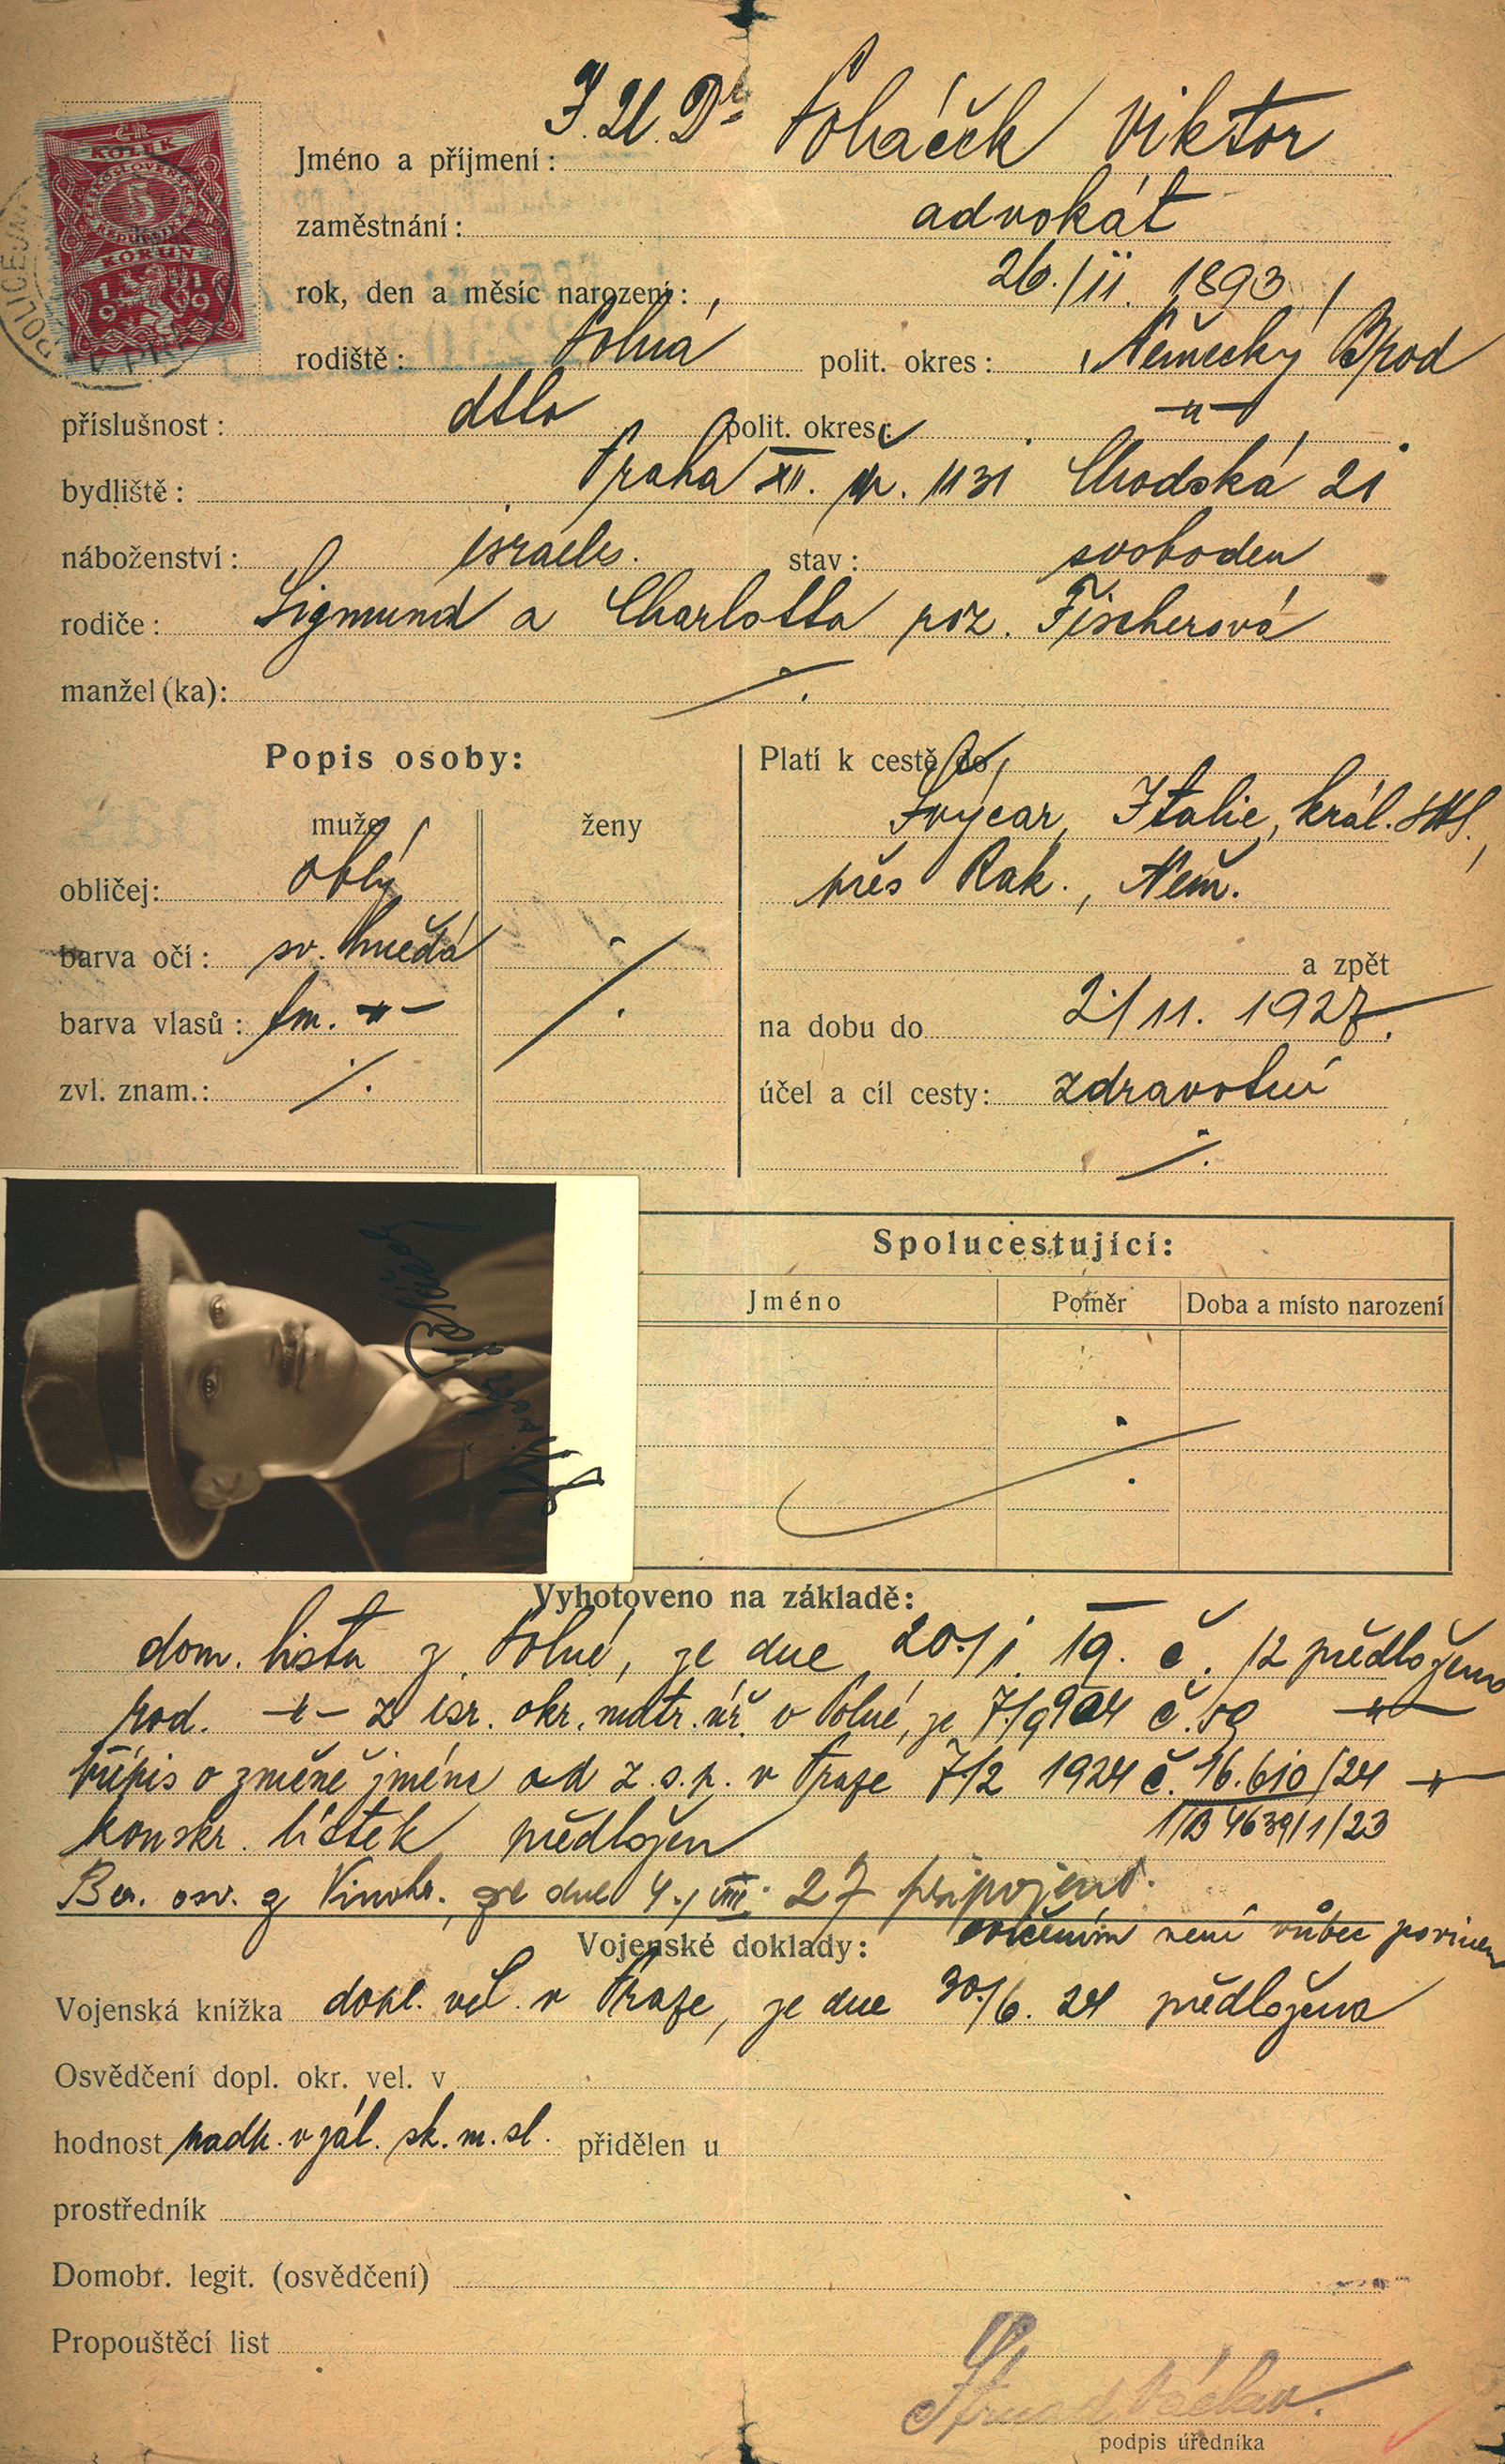 ČR
KOLEK
ČESKOSLOVENSKÁ
5
KORUN
1919
POLICEJNÍ
V PRAZE
Jméno a příjmení: J.U.Dr Poláček Viktor
zaměstnání: advokát
rok, den a měsíc narození: 26./II. 1893
rodiště: Polná polit. okres: Německý Brod
příslušnost: dtto polit. okres: —"—
bydliště: Praha XII. čp. 1131 Chodská 21
náboženství: israels. stav: svoboden
rodiče: Sigmund a Charlotta roz. Fischerová
manžel(ka): ./.
Popis osoby:
muže ženy
obličej: oblý
barva očí: sv. hnědá ./.
barva vlasů: tm. —"—
zvl. znam.: ./.
Platí k cestě do
Švýcar, Italie, král. SHS.,
přes Rak., Něm.
a zpět
na dobu do 2/11. 1927.
účel a cíl cesty: zdravotní
./.
Viktor Poláček
Spolucestující:
Jméno Poměr Doba a místo narození
./.
Vyhotoveno na základě:
dom. listu z Polné, ze dne 20./I. 19. č. 12 předloženo
rod. —"— z isr. okr. matr. úř. v Polné, ze 7./9 904 č. 59 —"—
výpis o změně jména od z.s.p. v Praze 7/2 1924 č. 16.610/24 —"—
1/B 4639/1/23
konskr. lístek předložen
Ber. osv. z Vinohr., ze dne 4./VIII. 27 připojeno.
Vojenské doklady: cvičením není vůbec povinen
Vojenská knížka dopl. vel. v Praze, ze dne 30./6. 24 předložena
Osvědčení dopl. okr. vel. v
hodnost nadp. v zál. sk. m. sl. přidělen u
prostředník
Domobr. legit. (osvědčení)
Propouštěcí list
Strnad Václav.
podpis úředníka